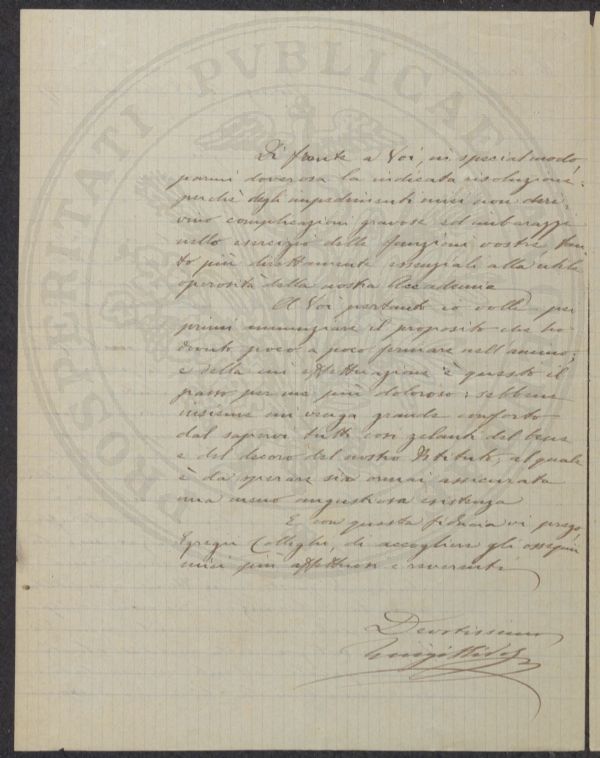 PROSPERITATI PVBLICAE
Di fronte a Voi, in special modo,
parmi doverosa la indicata risoluzione:
perchè dagli impedimenti miei non deri
vino complicazioni gravose ed imbarazzi
nello esercizio delle funzioni vostre tan
to più direttamente essenziali alla utile
operosità della nostra Accademia
A Voi pertanto io volli per
primi annunziare il proposito che ho
dovuto poco a poco formare nell'animo;
e della cui effettuazione è questo il
passo per me più doloroso: sebbene
insieme mi venga grande conforto
dal sapervi tutti così zelanti del bene
e del decoro del nostro Istituto, al quale
è da sperare sia ormai assicurata
una meno angustiosa esistenza
E con questa fiducia vi prego,
Egregi Colleghi, di accogliere gli ossequi
miei più affettuosi e reverenti
Devotissimo
Luigi